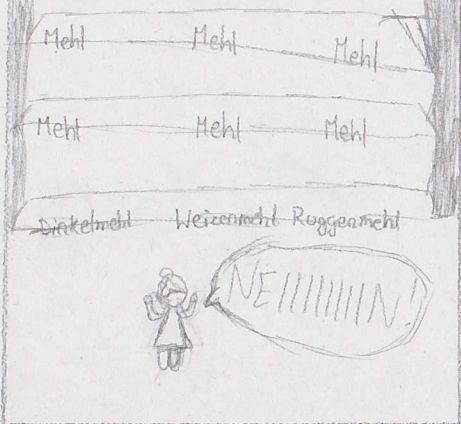 Mehl Mehl Mehl
Mehl Mehl Mehl
Dinkelmehl Weizenmehl Roggenmehl
NEIIIIIIIIN!